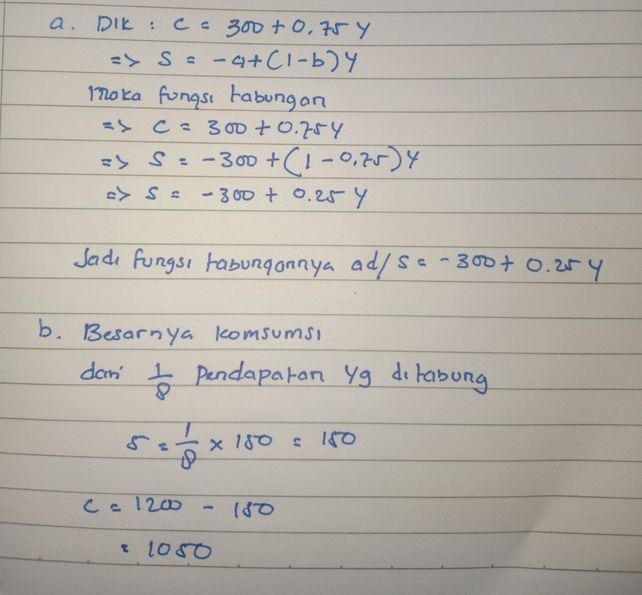 a. Dik : C = 300 + 0,75 Y
=> S = -a + (1-b) Y
Maka fungsi tabungan
=> C = 300 + 0.75 Y
=> S = -300 + (1 - 0,75) Y
=> S = -300 + 0.25 Y
Jadi fungsi tabungannya ad/ S = -300 + 0.25 Y
b. Besarnya komsumsi
dari 1/8 pendapatan yg ditabung
S = 1/8 x 150 = 150
C = 1200 - 150
= 1050